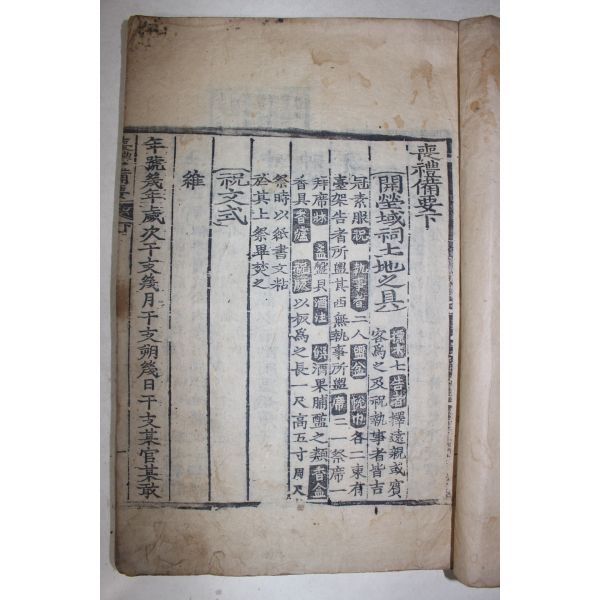 喪禮備要下
開塋域祠土地之具 標木七告者擇遠親或賓
客爲之及祝執事者皆吉
冠素服祝執事者二人盥盆帨巾各二東有
臺架告者所盥其西無執事所盥席二一祭席一
拜席牀盞盤具酒注饌酒果脯醢之類香盒
香具香爐祝版以板爲之長一尺高五寸周尺
祭時以紙書文粘
於其上祭畢焚之
祝文式
維
年號幾年歲次干支幾月干支朔幾日干支某官某敢
喪禮備要下